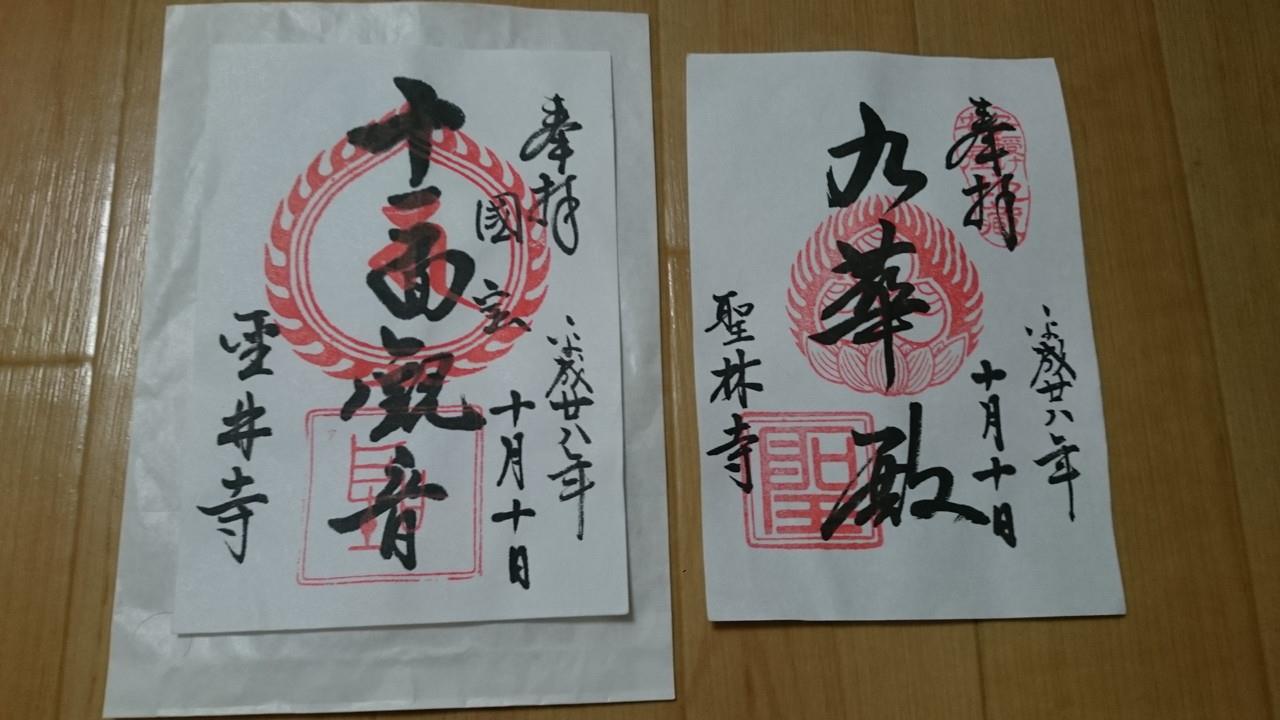 奉拝
國宝
平成廿八年
十月十日
十一面觀音
聖林寺
奉拝
平成廿八年
十月十日
九華殿
聖林寺
聖